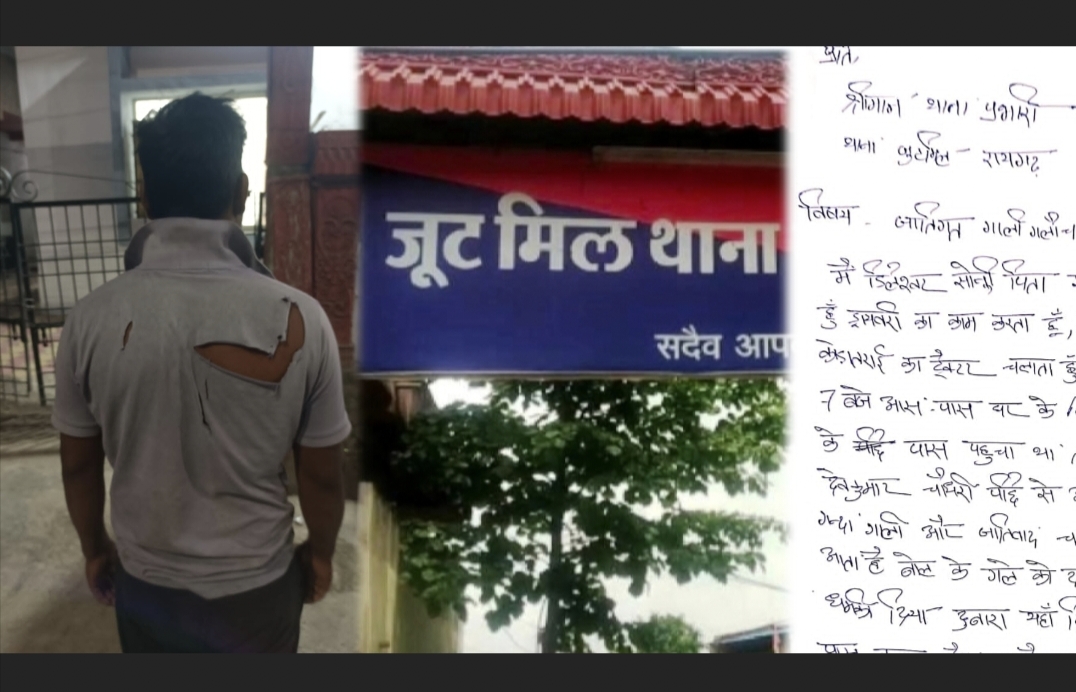 जूट मिल थाना
सदैव आप
प्रति,
श्रीमान थाना प्रभारी
थाना जुटमिल - रायगढ़
विषय - जातिगत गाली गलौच
मैं डिलेश्वर सोनी पिता
हूँ ड्रायवरी का काम करता हूँ,
का ट्रेक्टर चलाता हूँ
7 बजे आस-पास घर के
के पास पहुचा था
देवकुमार चौधरी पीछे से
गन्दा गाली और जातिवाद
आता है बोल के गले को
धमकि दिया दुबारा यहाँ